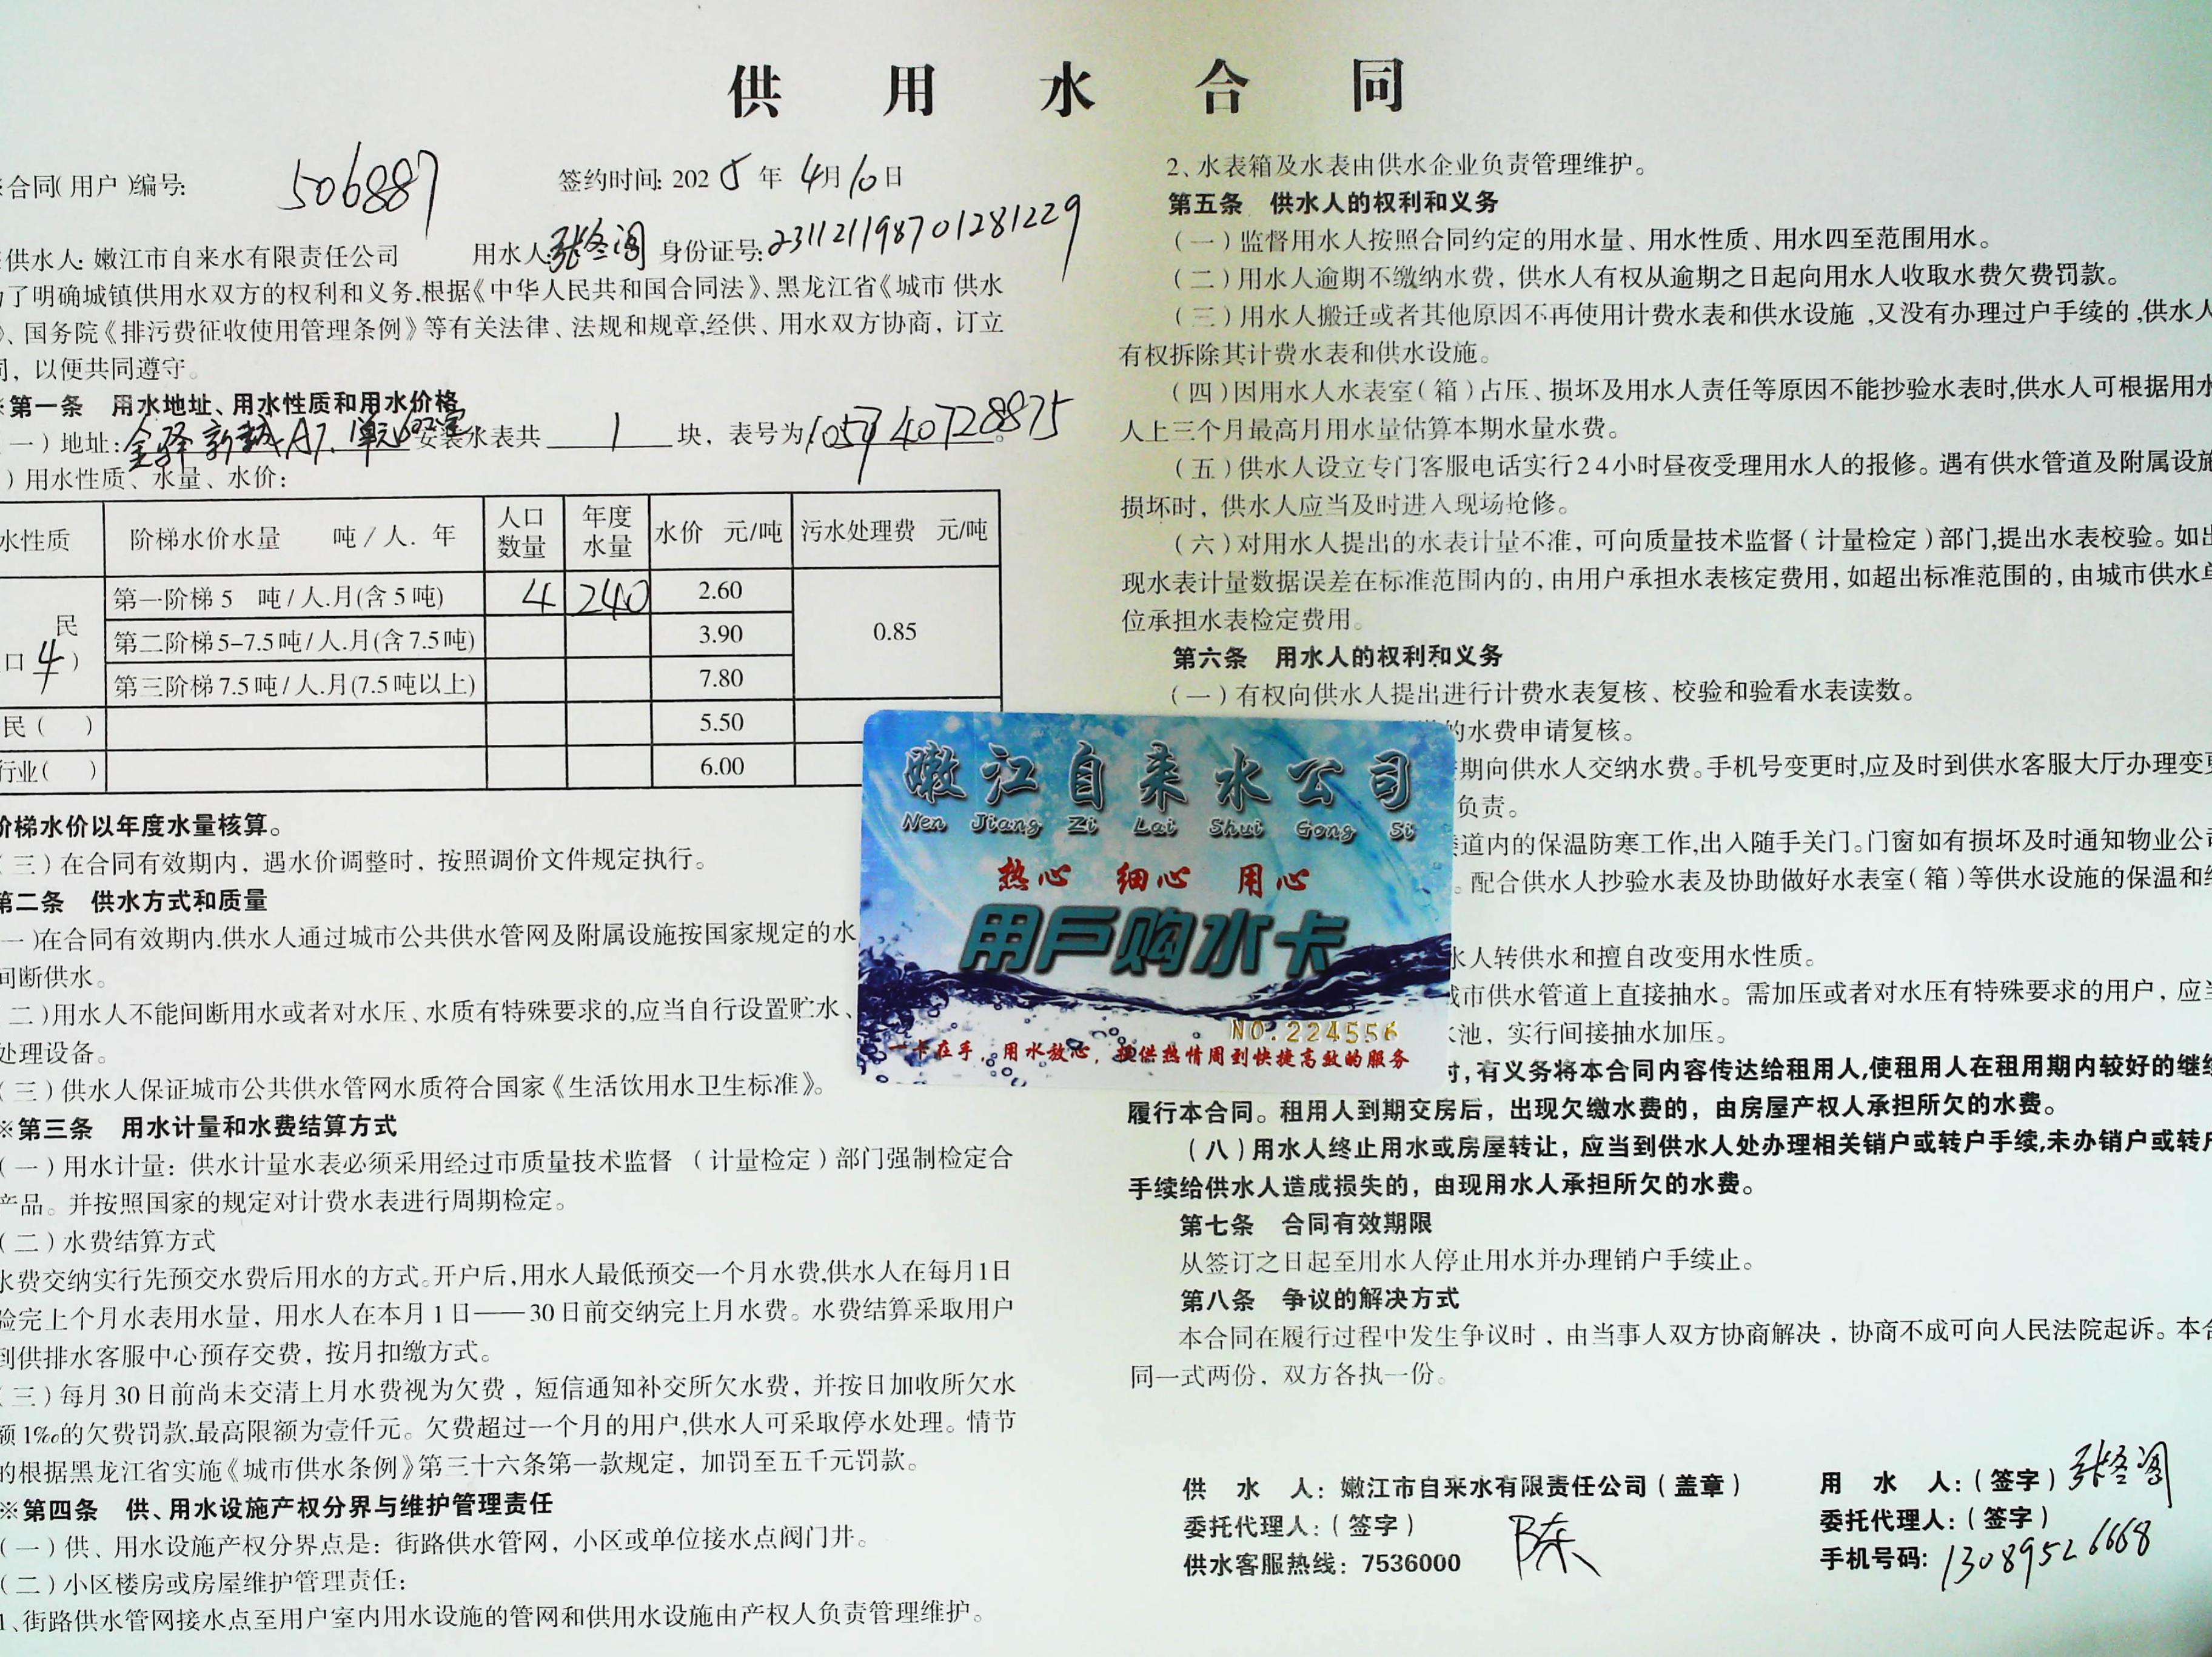 供用水合同
合同(用户)编号: 506887 签约时间: 2025年4月10日
供水人: 嫩江市自来水有限责任公司 用水人: 张冬阁 身份证号: 231121198701281229
了明确城镇供用水双方的权利和义务,根据《中华人民共和国合同法》、黑龙江省《城市 供水
》、国务院《排污费征收使用管理条例》等有关法律、法规和规章,经供、用水双方协商, 订立
同, 以便共同遵守。
※第一条 用水地址、用水性质和用水价格
一)地址: 金驿新城A7.1单元602室 安装水表共 1 块, 表号为 105940728875。
)用水性质、水量、水价:
水性质 阶梯水价水量 吨/人.年 人口数量 年度水量 水价 元/吨 污水处理费 元/吨
民 口4) 第一阶梯5 吨/人.月(含5吨) 4 240 2.60 0.85
第二阶梯5-7.5吨/人.月(含7.5吨) 3.90
第三阶梯7.5吨/人.月(7.5吨以上) 7.80
民( ) 5.50
行业( ) 6.00
阶梯水价以年度水量核算。
(三)在合同有效期内, 遇水价调整时, 按照调价文件规定执行。
第二条 供水方式和质量
一)在合同有效期内,供水人通过城市公共供水管网及附属设施按国家规定的水
间断供水。
二)用水人不能间断用水或者对水压、水质有特殊要求的,应当自行设置贮水、
处理设备。
(三)供水人保证城市公共供水管网水质符合国家《生活饮用水卫生标准》。
※第三条 用水计量和水费结算方式
(一)用水计量: 供水计量水表必须采用经过市质量技术监督 (计量检定)部门强制检定合
产品。并按照国家的规定对计费水表进行周期检定。
(二)水费结算方式
水费交纳实行先预交水费后用水的方式。开户后,用水人最低预交一个月水费,供水人在每月1日
验完上个月水表用水量, 用水人在本月1日——30日前交纳完上月水费。水费结算采取用户
到供排水客服中心预存交费, 按月扣缴方式。
(三)每月30日前尚未交清上月水费视为欠费, 短信通知补交所欠水费, 并按日加收所欠水
额1‰的欠费罚款,最高限额为壹仟元。欠费超过一个月的用户,供水人可采取停水处理。情节
的根据黑龙江省实施《城市供水条例》第三十六条第一款规定, 加罚至五千元罚款。
※第四条 供、用水设施产权分界与维护管理责任
(一)供、用水设施产权分界点是: 街路供水管网, 小区或单位接水点阀门井。
(二)小区楼房或房屋维护管理责任:
1、街路供水管网接水点至用户室内用水设施的管网和供用水设施由产权人负责管理维护。
2、水表箱及水表由供水企业负责管理维护。
第五条 供水人的权利和义务
(一)监督用水人按照合同约定的用水量、用水性质、用水四至范围用水。
(二)用水人逾期不缴纳水费, 供水人有权从逾期之日起向用水人收取水费欠费罚款。
(三)用水人搬迁或者其他原因不再使用计费水表和供水设施,又没有办理过户手续的,供水人
有权拆除其计费水表和供水设施。
(四)因用水人水表室(箱)占压、损坏及用水人责任等原因不能抄验水表时,供水人可根据用水
人上三个月最高月用水量估算本期水量水费。
(五)供水人设立专门客服电话实行24小时昼夜受理用水人的报修。遇有供水管道及附属设施
损坏时, 供水人应当及时进入现场抢修。
(六)对用水人提出的水表计量不准, 可向质量技术监督(计量检定)部门,提出水表校验。如出
现水表计量数据误差在标准范围内的, 由用户承担水表核定费用, 如超出标准范围的, 由城市供水单
位承担水表检定费用。
第六条 用水人的权利和义务
(一)有权向供水人提出进行计费水表复核、校验和验看水表读数。
的水费申请复核。
期向供水人交纳水费。手机号变更时,应及时到供水客服大厅办理变更
负责。
楼道内的保温防寒工作,出入随手关门。门窗如有损坏及时通知物业公司
。配合供水人抄验水表及协助做好水表室(箱)等供水设施的保温和维
水人转供水和擅自改变用水性质。
城市供水管道上直接抽水。需加压或者对水压有特殊要求的用户, 应当
水池, 实行间接抽水加压。
时, 有义务将本合同内容传达给租用人,使租用人在租用期内较好的继续
履行本合同。租用人到期交房后, 出现欠缴水费的, 由房屋产权人承担所欠的水费。
(八)用水人终止用水或房屋转让, 应当到供水人处办理相关销户或转户手续,未办销户或转户
手续给供水人造成损失的, 由现用水人承担所欠的水费。
第七条 合同有效期限
从签订之日起至用水人停止用水并办理销户手续止。
第八条 争议的解决方式
本合同在履行过程中发生争议时, 由当事人双方协商解决, 协商不成可向人民法院起诉。本合
同一式两份, 双方各执一份。
供 水 人: 嫩江市自来水有限责任公司(盖章)
委托代理人:(签字) 陈
供水客服热线: 7536000
用 水 人:(签字) 张冬阁
委托代理人:(签字)
手机号码: 13089526668
嫩江自来水公司
Nen Jiang Zi Lai Shui Gong Si
热心 细心 用心
用户购水卡
NO.224556
一卡在手,用水放心,提供热情周到快捷高效的服务